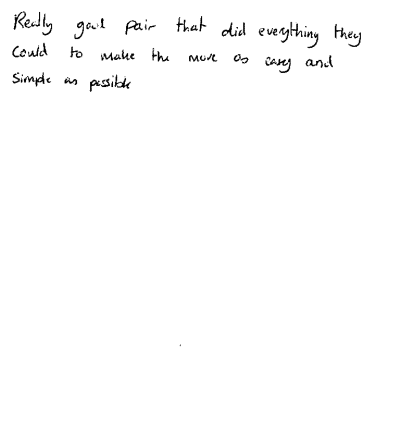 Really good pair that did everything they
could to make the move as easy and
simple as possible